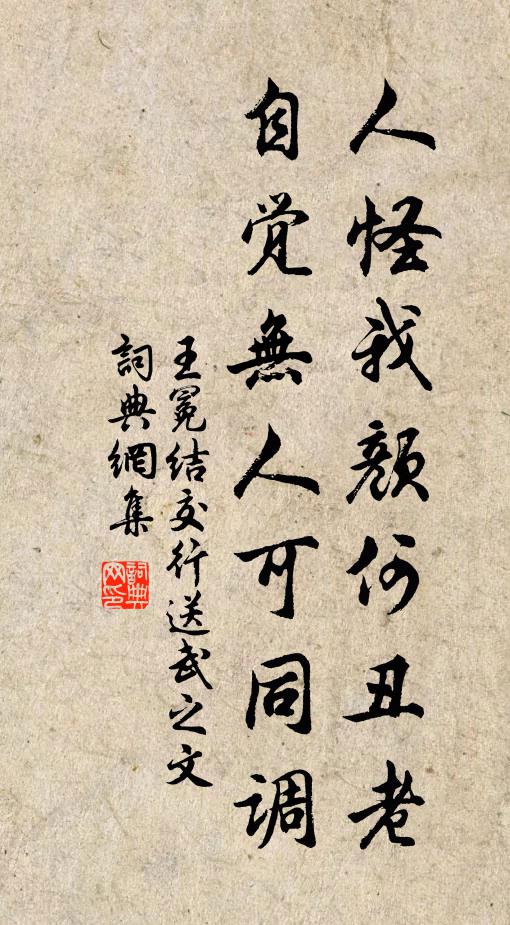 人怪我颜何丑老
自觉無人可同调
王冕结交行送武之文
詞典網集
詞典
网印